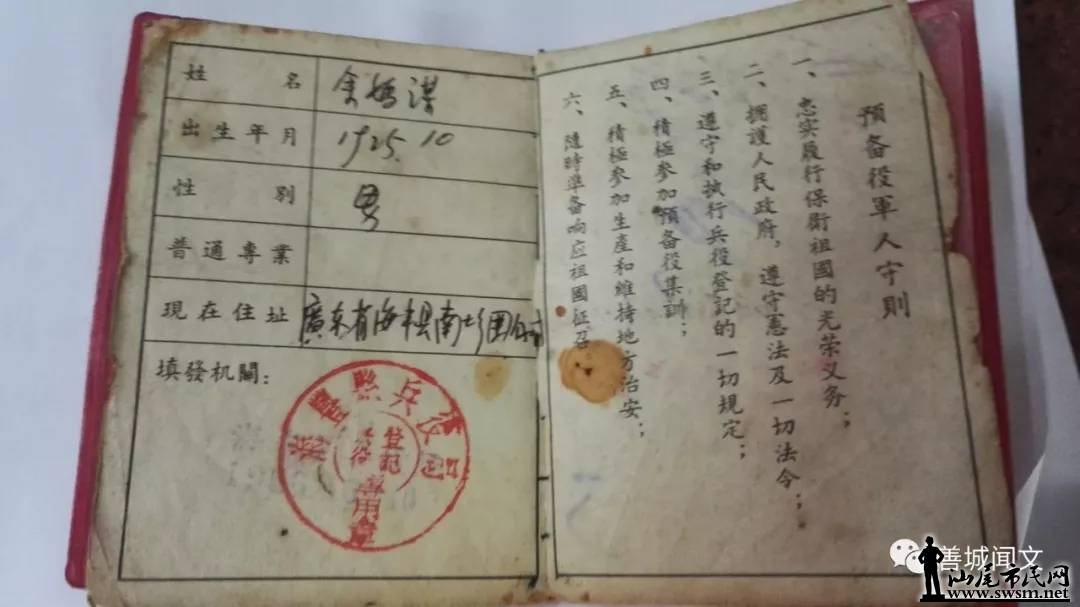 姓名
出生年月 1925.10
性别 男
普通專業
現在住址 廣东省海丰县南
填發机關:
兵役
登記
專用章
預备役軍人守則
一、忠实履行保衛祖國的光荣义务;
二、擁護人民政府,遵守憲法及一切法令;
三、遵守和执行兵役登記的一切規定;
四、積極参加預备役集訓;
五、積極参加生產和維持地方治安;
六、隨時準备响应祖國征召。
善城闻文
汕尾市民网
www.swsm.net